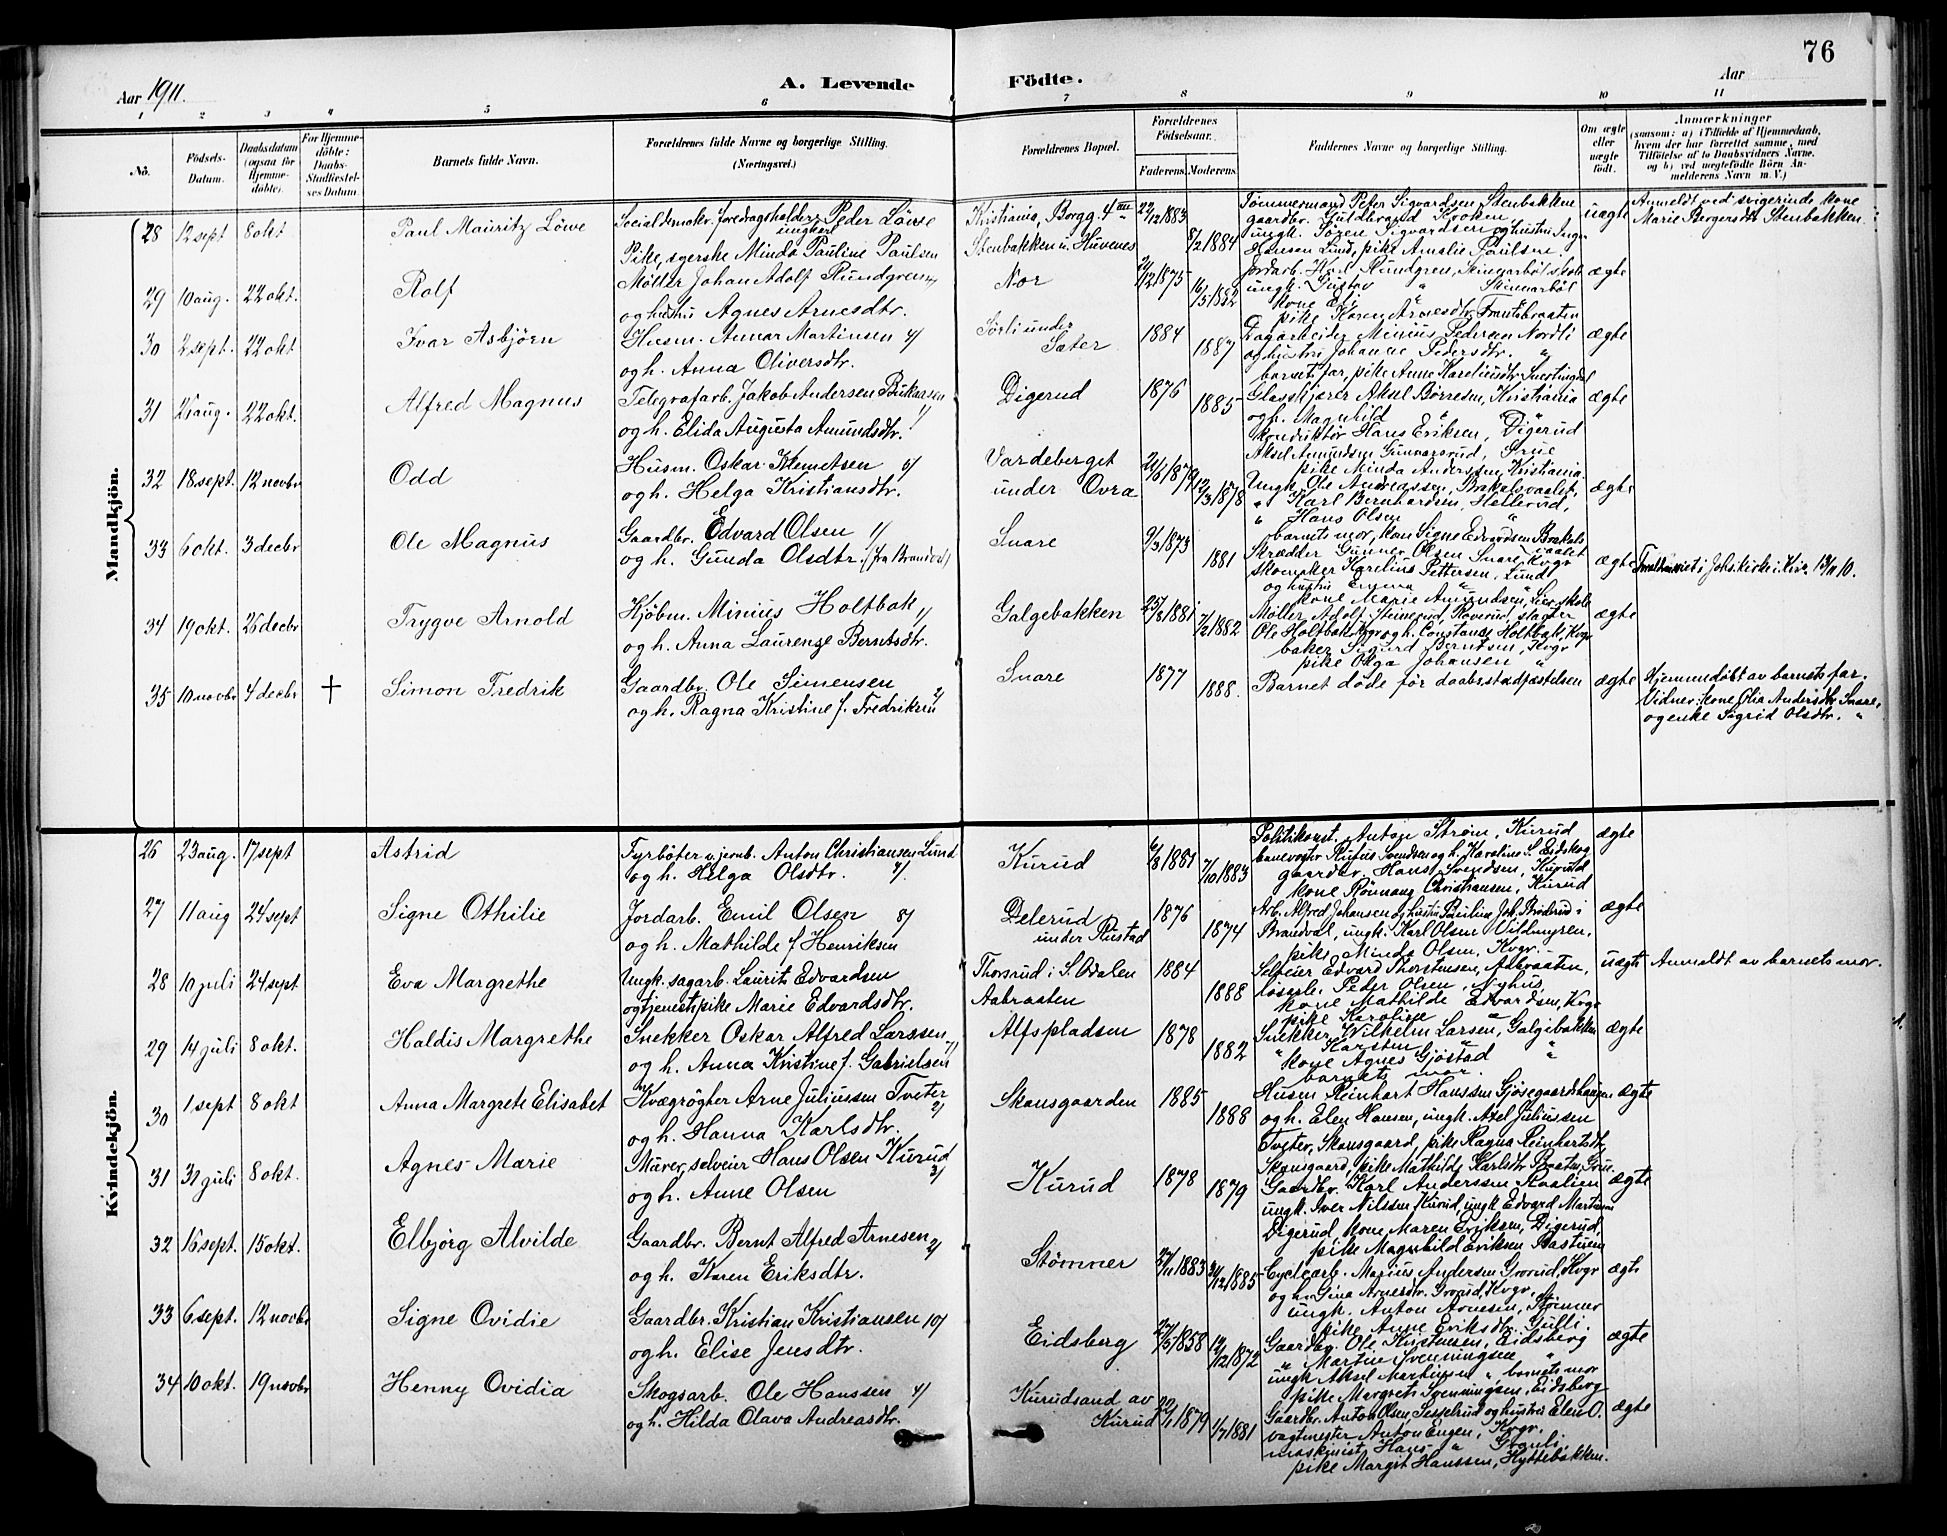 76
Aar 1911.
A. Levende Födte.
Aar
1 2 3 4 5 6 7 8 9 10 11
No.
Födsels-Datum.
Daabsdatum (ogsaa for Hjemme-döbte).
For Hjemme-döbte: Daabs-Stadfæstel-ses Datum.
Barnets fulde Navn.
Forældrenes fulde Navne og borgerlige Stilling. (Næringsvei.)
Forældrenes Bopæl.
Forældrenes Födselsaar.
Faderens. Moderens.
Faddernes Navne og borgerlige Stilling.
Om ægte eller uægte födt.
Anmærkninger
(saasom: a) i Tilfælde af Hjemmedaab,
hvem der har forrettet samme, med
Tilföielse af to Daabsvidners Navne.
og b) ved uægtefödte Börn An-
melderens Navn m. V.)
Mandkjön.
28 12 sept 8 okt Paul Mauritz Löwe
Socialdemokr. foredragsholder ungkarl Peder Löwe
Pike, syerske Minda Pauline Paulsen
Kristiania, Borgg. 4
Stenbakken u. Huvenes
22/12 1883 8/2 1884
Tömmermand Peter Sigvardsen Stenbakken
gaardbr. Guldbrand Kroken
ungk. Sören Sigvardsen og hustru Inga
Hansen Lund, pike Amalie Paulsen.
uægte
Anmeldt ved svigerinde kone
Marie Borgersdtr Stenbakken.
29 10 aug. 22 okt. Rolf
Möller Johan Adolf Rundgreen
og hustru Agnes Arnesdtr.
Nor
21/12 1875 16/5 1882
Jordarb. Karl Rundgren, Skinnarböl skole
ungk. Gustav " Skinnarböl
kone Eli "
pike Karen Arnesdtr, Frautsbraaten
ægte
30 2 sept. 22 okt Ivar Asbjörn
Husm. Annar Martinsen 4/
og h. Anna Oliversdtr.
Sörli under Sæter
1884 1887
Dagarbeider Minius Pedersen Nordli
og hustru Johanne Pedersdtr. "
barnets far, pike Anne Karelinedtr Snertingdal
ægte
31 26 aug. 22 okt. Alfred Magnus
Telegrafarb. Jakob Andersen 1/
og h. Elida Augusta Amundsdtr.
Digerud
1876 1885
Glasskjærer Aksel Börresen, Kristiania
og h. Magnhild " "
Konduktör Hans Eriksen, Digerud
Aksel Amundsen Gunnarsrud, Grue
pike Minda Anderssen, Kristiania
ægte
32 18 sept. 12 novbr Odd
Husm. Oskar Klemetsen 6/
og h. Helga Kristiansdtr.
Vardeberget under Övra
21/6 1879 12/3 1878
Ungk. Ole Andreassen, Brakalsvaalet,
" Karl Bernhardsen, Hellerud,
" Hans Olsen "
barnets mor, kone Signe Edvardsen Brakalsvaalet
ægte
33 6 okt. 3 decbr Ole Magnus
Gaardbr. Edvard Olsen 1/
og h. Gunda Olsdtr. (fra Brandval)
Snare
9/3 1873 1881
Skrædder Gunner Olsen Snare, Kvgr
skomaker Karelius Pettersen, Lund
og hustru Emma "
kone Marie Amundsen, Lier skole
ægte
34 19 okt. 26 decbr Trygve Arnold
Kjöbm. Minius Holtbak 1/
og h. Anna Laurenze Berntsdtr.
Galgebakken
25/8 1881 7/2 1882
Möller Adolf Steinerud, Roverud, slagter
Ole Holtbak Kvgr og h. Constance Holtbak, Kvgr
baker Sigurd Berntsen, Kvgr
pike Olga Johansen "
ægte
35 10 novbr 4 decbr + Simon Fredrik
Gaardbr. Ole Simensen 2/
og h. Ragna Kristine f. Fredriksen
Snare
1877 1888.
Barnet döde för daabsstadfæstelsen
ægte
Hjemmedöbt av barnets far.
Vidner: kone Olia Andersdtr Snare,
og enke Sigrid Olsdtr. "
Kvindekjön.
26 23 aug. 17 sept Astrid
Fyrböter v. jernb. Anton Christiansen Lund
og h. Helga Olsdtr. 2/
Kurud
6/8 1881 7/10 1883
Politikonst. Anton Ström, Kurud
banevogter Rufus Svendsen og h. Karoline S. Eidskog
gaardbr. Hans Svendsen, Kurud
kone Rönnaug Christiansen, Kurud
ægte
27 11 aug 24 sept Signe Othilie
Jordarb. Emil Olsen 8/
og h. Mathilde f Henriksen
Delerud under Rustad
1876 1874
Arb. Alfred Johansen og hustru Pauline Joh. Bröderud i
Brandval, ungk. Karl Olsen Vildmyren,
pike Minda Olsen, Kvgr.
ægte
28 10 juli 24 sept Eva Margrethe
Ungk. sagarb. Laurits Edvardsen
og tjenestepike Marie Edvardsdtr.
Thorsrud i S. Odalen
Aabraaten
1884 1888
Selveier Edvard Thorstensen, Aabraaten,
lösarb. Peder Olsen, Nyhus,
kone Mathilde Edvardsen, Kvgr
pike Karoline "
uægte
Anmeldt av barnets mor.
29 14 juli 8 okt. Haldis Margrethe
Snekker Oskar Alfred Larssen
og h. Anna Kristine f. Gabrielsen
Alfspladsen
1878 1882
Snekker Wilhelm Larsen, Galgebakken
" Karsten "
kone Agnes Gjöstad "
barnets mor.
ægte
30 1 sept 8 okt Anna Margrete Elisabet
Kvægrögter Arne Juliussen Tveter 2/
og h. Hanna Karlsdtr.
Skansgaarden
1885 1888
Husm Reinhart Hanssen Gjösegaardshaugen
og h. Elen Hansen, ungk. Axel Juliussen
Tveter, Skansgaard, pike Ragna Reinhartsdtr
Skansgaard, pike Mathilde Karlsdtr Braaten, Grue
ægte
31 31 juli 8 okt. Agnes Marie
Murer, selveier Hans Olsen Kurud 3/
og h. Anne Olsen
Kurud
1878 1879
Gaardbr. Karl Anderssen Kaalien
ungk. Iver Nilssen Kurud, ungk Edvard Martinsen
Digerud, kone Maren Eriksen, Digerud,
pike Magnhild Eriksen Rastuen
ægte
32 16 sept. 15 okt. Elbjörg Alvilde
Gaardbr. Bernt Alfred Arnesen 2/
og h. Karen Eriksdtr.
Stömner
27/11 1883 31/12 1885
Cyclearb. Marius Andersen Grorud, Kvgr
og h. Gina Arnesdtr. Grorud, Kvgr,
ungk. Anton Arnesen, Stömner
pike Anne Eriksdtr. Gulli.
ægte
33 6 sept. 12 novbr Signe Ovidie
Gaardbr. Kristian Kristiansen 10/
og h. Elise Jensdtr.
Eidsberg
27/5 1858 12/12 1872
Gaardbr. Ole Kristensen, Eidsberg
" Martin Svenningsen "
ungk Aksel Martinsen " barnets mor
pike Margrete Svenningsen, Eidsberg
ægte
34 10 okt. 19 novbr Henny Ovidia
Skogsarb. Ole Hanssen 4/
og h. Hilda Olava Andreasdtr.
Kurudsand av Kurud
22/1 1879 1/7 1881
Gaardbr. Anton Olsen, Sesselrud og hustru Elen O.
vagtmester Anton Engen, Kvgr.
maskinist Hans " Granli,
pike Margit Hanssen, Hyttebakken.
ægte